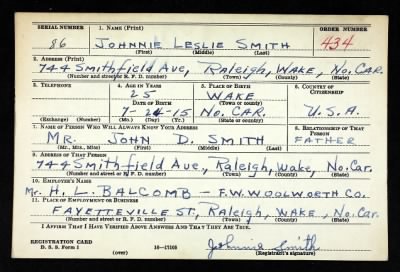 SERIAL NUMBER 1. NAME (Print) ORDER NUMBER
86 JOHNNIE LESLIE SMITH 434
(First) (Middle) (Last)
2. ADDRESS (Print)
744 Smithfield Ave, Raleigh, WAKE, No. CAR.
(Number and street or R. F. D. number) (Town) (County) (State)
3. TELEPHONE 4. AGE IN YEARS 5. PLACE OF BIRTH 6. COUNTRY OF CITIZENSHIP
25 WAKE
DATE OF BIRTH (Town or county)
7-24-15 No. CAR. U.S.A.
(Exchange) (Number) (Mo.) (Day) (Yr.) (State or country)
7. NAME OF PERSON WHO WILL ALWAYS KNOW YOUR ADDRESS 8. RELATIONSHIP OF THAT PERSON
MR. JOHN D. SMITH FATHER
(Mr., Mrs., Miss) (First) (Middle) (Last)
9. ADDRESS OF THAT PERSON
744 Smithfield Ave., Raleigh, Wake, No. Car.
(Number and street or R. F. D. number) (Town) (County) (State)
10. EMPLOYER'S NAME
Mr. H. L. BALCOMB - F. W. WOOLWORTH CO.
11. PLACE OF EMPLOYMENT OR BUSINESS
FAYETTEVILLE ST, Raleigh, WAKE, No. Car.
(Number and street or R. F. D. number) (Town) (County) (State)
I AFFIRM THAT I HAVE VERIFIED ABOVE ANSWERS AND THAT THEY ARE TRUE.
REGISTRATION CARD
D. S. S. Form 1 16-17105 Johnnie Smith
(over) (Registrant's signature)